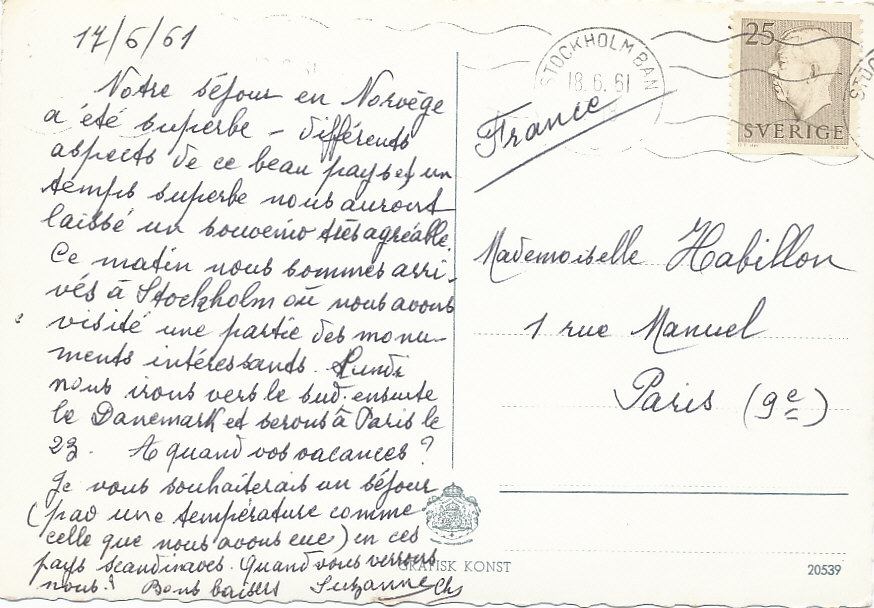 17/6/61
Notre séjour en Norvège
a été superbe - différents
aspects de ce beau pays et un
temps superbe nous auront
laissé un souvenir très agréable.
Ce matin nous sommes arri-
vés à Stockholm où nous avons
visité une partie des monu-
ments intéressants. Lundi
nous irons vers le sud. ensuite
le Danemark et serons à Paris le
23. A quand vos vacances ?
Je vous souhaiterais un séjour
(par une température comme
celle que nous avons eue) en ces
pays scandinaves. Quand vous verrons
nous ? Bons baisers Suzanne
STOCKHOLM BAN
18.6.61
25
SVERIGE
France
Mademoiselle Habillon
1 rue Manuel
Paris (9e)
GRAFISK KONST
20539